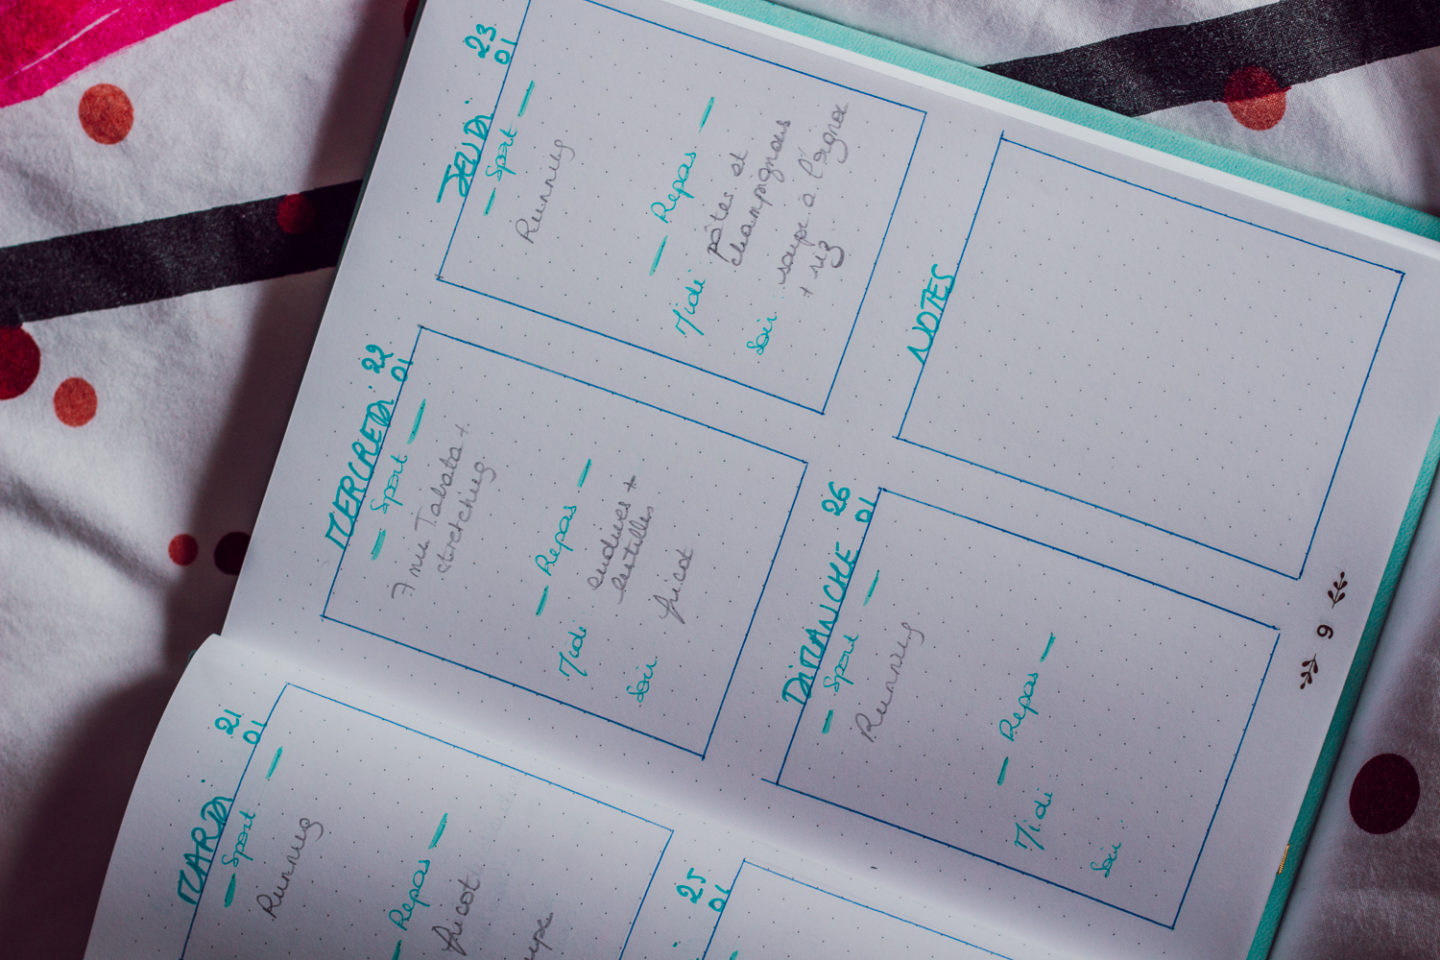 MARDI 21
01
— Sport —
Running
— Repas —
fricot
MERCREDI 22
01
— Sport —
7 mn Tabata +
stretching
— Repas —
Midi endives +
lentilles
Soir fricot
JEUDI 23
01
— Sport —
Running
— Repas —
Midi pâtes et
champignons
Soir soupe à l'oignon
+ riz
25
01
DIMANCHE 26
01
— Sport —
Running
— Repas —
Midi
Soir
NOTES
9